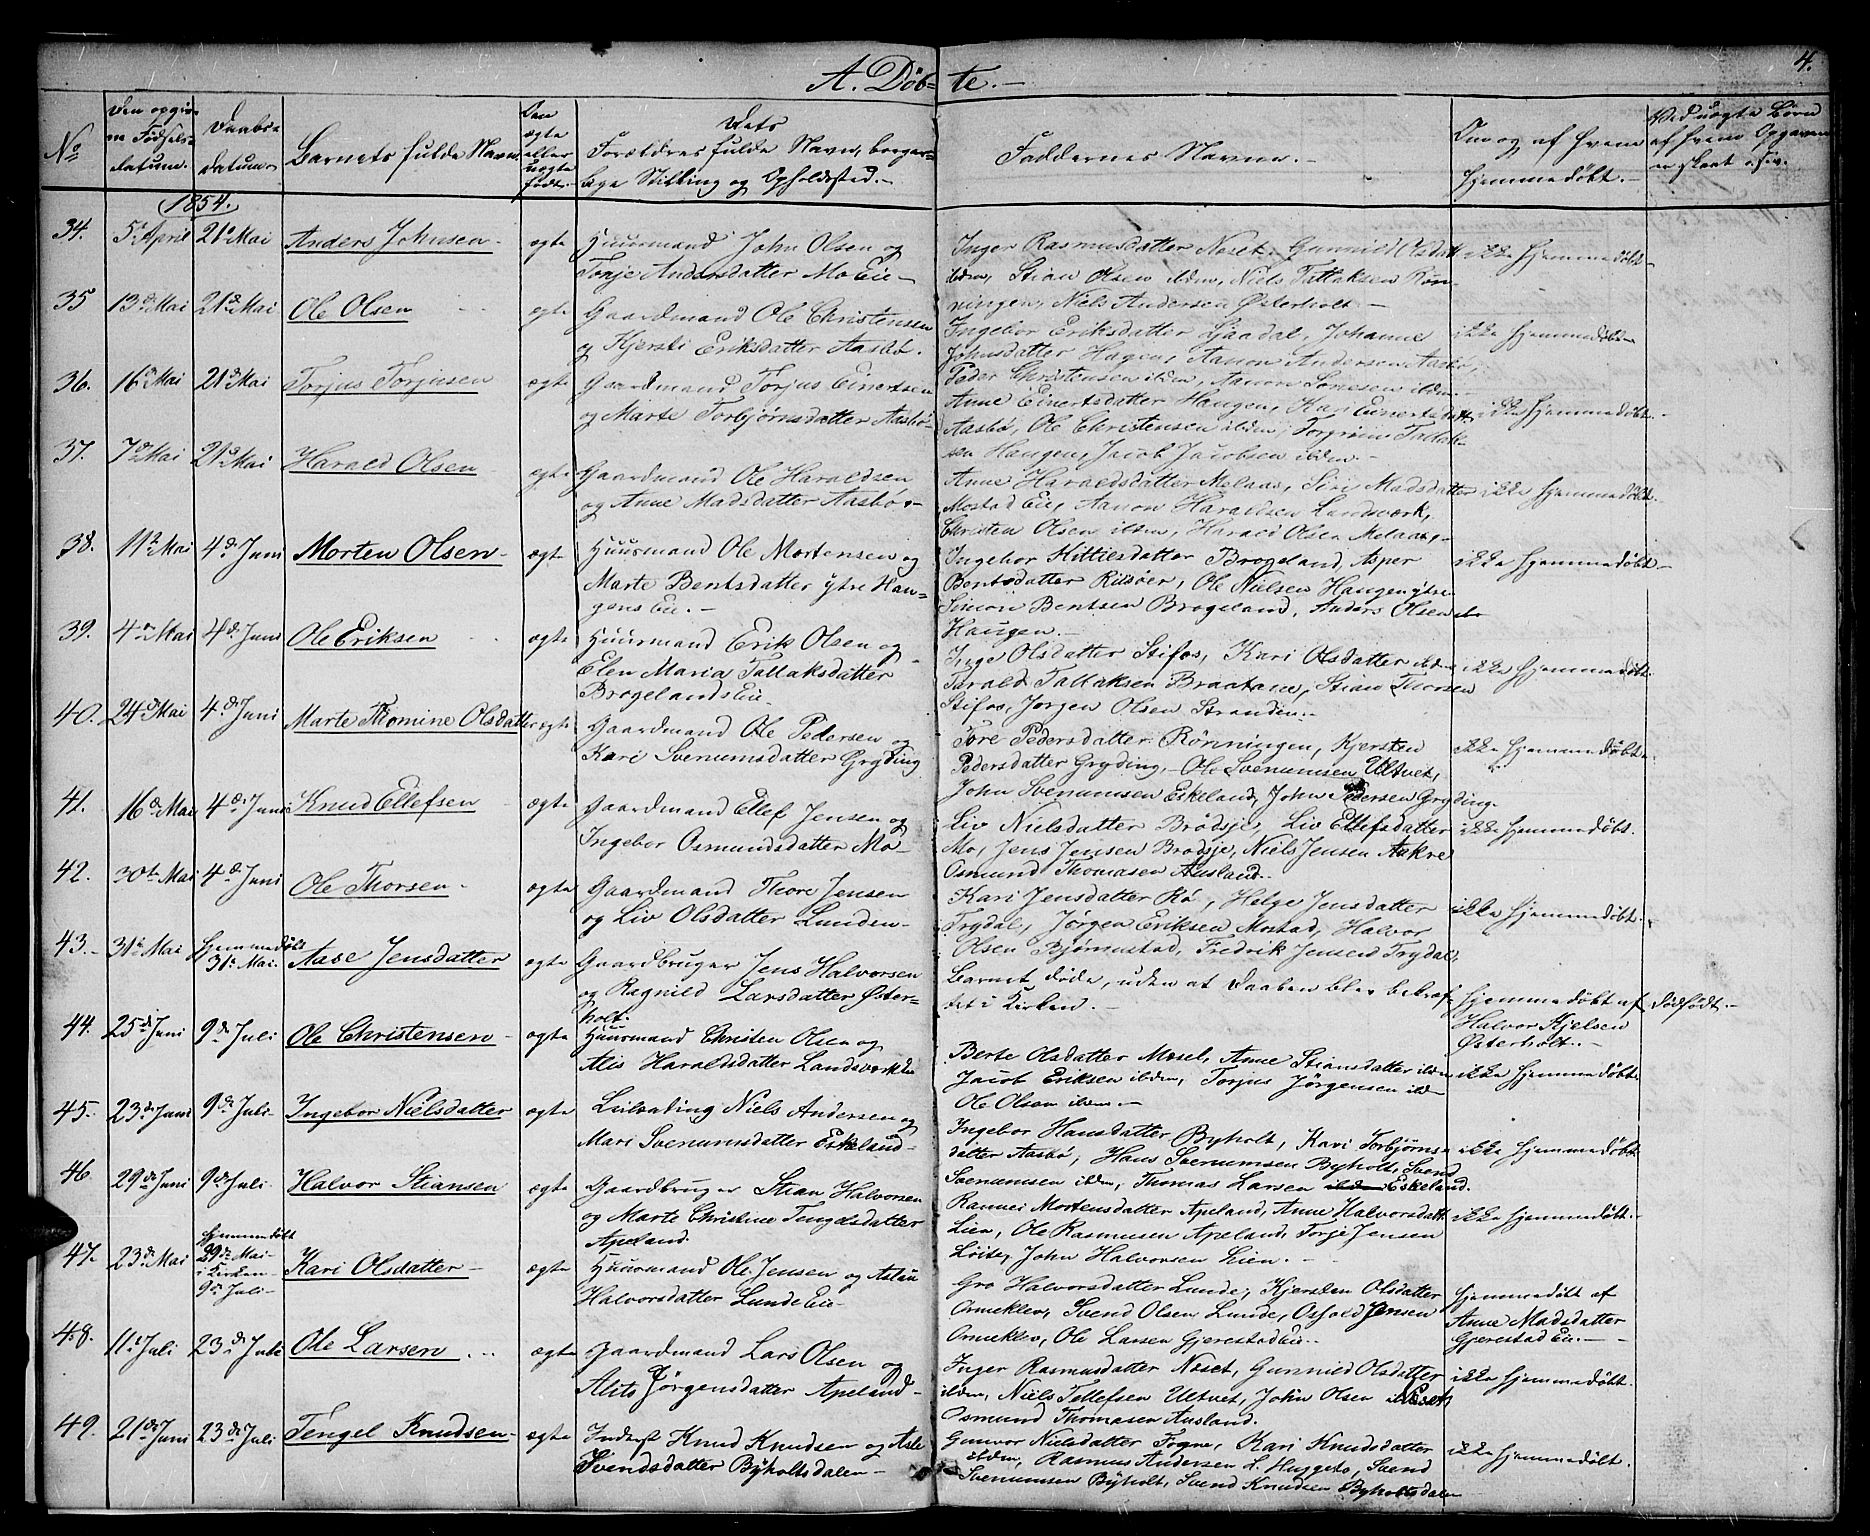 A. Döb= te. —
4.
No
Den opgiv=
ne Födsels=
datum.
Daabs=
datum.
Barnets fulde Navn.
Om
ægte
eller
uægte
födt.
Dets
Forældres fulde Navn, borger=
lige Stilling og Opholdssted. —
Faddernes Navne. —
Om og af hvem
hjemmedöbt. —
Ved uægte Börn
af hvem Opgaven
er skeet o.s.v.
1854.
34. 5te April 21de Mai Anders Johnsen — ægte Huusmand John Olsen og
Tonje Andersdatter Mo Eie —
Inger Rasmusdatter Neset, Gunnild Olsdatt
ibdm, Stian Olsen ibdm, Niels Tallaksen Rön-
ningen, Niels Andersen Österholt. —
ikke hjemmedöbt —
35 13de Mai 21de Mai Ole Olsen ægte Gaardmand Ole Christensen
og Kjersti Eriksdatter Aasbö.
Ingebor Eriksdatter Sjaadal, Johanne
Johnsdatter Hagen, Aanon Andersen Aasbö,
Peder Christensen ibdm, Aanon Tonesen ibdm —
ikke hjemmedöbt —
36. 16de Mai 21de Mai Torjus Torjusen ægte Gaardmand Torjus Einertsen
og Marte Torbjörnsdatter Aasbö —
Anne Einertsdatter Haugen, Kari Einertsdatt
Aasbö, Ole Christensen ibdm, Torgrim Tallak-
sen Haugen, Jacob Jacobsen ibdm —
ikke hjemmedöbt. —
37. 7de Mai 21de Mai Harald Olsen ægte Gaardmand Ole Haraldsen
og Anne Madsdatter Aasbö —
Anne Haraldsdatter Melaas, Siri Madsdatter
Mostad Eie, Aanon Haraldsen Landsverk,
Christen Olsen ibdm, Harald Olsen Melaas —
ikke hjemmedöbt. —
38. 11te Mai 4de Juni Morten Olsen — ægte Huusmand Ole Mortensen og
Marte Bentsdatter ytre Hau=
gens Eie. —
Ingebor Kittilsdatter Brogeland, Asper
Bentsdatter Rilsöer, Ole Nielsen Haugen ytre
Simon Bentsen Brogeland, Anders Olsen
Haugen. —
ikke hjemmedöbt —
39. 4de Mai 4de Juni Ole Eriksen ægte Huusmand Erik Olsen og
Elen Maria Tallaksdatter
Brogelands Eie —
Inge Olsdatter Stifos, Kari Olsdatter ibdm
Tarald Tallaksen Braatane, Stian Thorsen
Stifos, Jörgen Olsen Stranden. —
ikke hjemmedöbt.
40. 24de Mai 4de Juni Marte Thomine Olsdatter ægte Gaardmand Ole Pedersen og
Kari Svenumsdatter Gryding
Tore Pedersdatter Rönningen, Kjersten
Pedersdatter Gryding, Ole Svenumsen Ultvet,
John Svenumsen Eskeland, John Pedersen Gryding.
ikke hjemmedöbt.
41. 16de Mai 4de Juni Knud Ellefsen ægte Gaardmand Ellef Jensen og
Ingebor Osmundsdatter Mo —
Liv Nielsdatter Brödsjö, Liv Ellefsdatter
Mo, Jens Jensen Brödsje, Niels Jensen Aakre
Osmund Thomasen Ausland. —
ikke hjemmedöbt.
42. 30te Mai 4de Juni Ole Thorsen — ægte Gaardmand Thore Jensen
og Liv Olsdatter Lunden —
Kari Jensdatter Rö, Helge Jensdatter
Trydal, Jörgen Eriksen Mostad, Halvor
Olsen Bjørnestad, Fredrik Jensen Trydal.
ikke hjemmedöbt.
43. 31te Mai hjemmedöbt
31te Mai. Aase Jensdatter ægte Gaardbruger Jens Halvorsen
og Ragnild Larsdatter Öster=
holt.
Barnet döde, uden at Daaben blev bekræf=
tet i Kirken. —
hjemmedöbt af
Halvor Kjelsen
Österholt. —
dödfödt. —
44. 25de Juni 9de Juli Ole Christensen — ægte Huusmand Christen Olsen og
Alis Haraldsdatter Landsverk Eie
Berte Olsdatter Mosel, Anne Stiansdatter ibdm
Jacob Eriksen ibdm, Torjus Jörgensen ibdm
Ole Olsen ibdm. —
ikke hjemmedöbt.
45. 23de Juni 9de Juli. Ingebor Nielsdatter ægte Leilænding Niels Andersen og
Mari Svenumsdatter Eskeland —
Ingebor Hansdatter Byholt, Kari Torbjörns=
datter Aasbö, Hans Svenumsen Byholt, Svend
Svenumsen ibdm, Thomas Larsen Eskeland.
ikke hjemmedöbt
46 29de Juni 9de Juli Halvor Stiansen ægte Gaardbruger Stian Halvorsen
og Marte Christine Tengelsdatter
Apeland.
Rannei Mortensdatter Apeland, Anne Halvorsdatt
Lien, Ole Rasmusen Apeland, Torje Jensen
Löite, John Halvorsen Lien. —
ikke hjemmedöbt. —
47. 23de Mai hjemmedöbt
29de Mai
i Kirken
9de Juli — Kari Olsdatter — ægte Huusmand Ole Jensen og Aslau
Halvorsdatter Lunde Eie —
Gro Halvorsdatter Lunde, Kjersten Olsdatter
Ormeklev, Svend Olsen Lunde, Osfold Jensen
Ormeklev, Ole Larsen Gjerestad Eie. —
hjemmedöbt af
Anne Madsdatter
Gjerestad Eie. —
48. 11te Juli 23de Juli Ole Larsen ægte Gaardmand Lars Olsen og
Alits Jörgensdatter Apeland —
Inger Rasmusdatter Neset, Gunnild Olsdatter
ibdm, Niels Tellefsen Ultvet, John Olsen Neset
Osmund Thomasen Ausland.
ikke hjemmedöbt.
49. 21de Juni 23de Juli Tengel Knudsen — ægte Inderst Knud Knudsen og Asle
Svendsdatter Byholtsdalen —
Gunvor Nielsdatter Fogne, Kari Knudsdatter
ibdm, Rasmus Andersen L. Huggeto, Svend
Svenumsen Byholt, Svend Knudsen Byholtsdalen
ikke hjemmedöbt. —